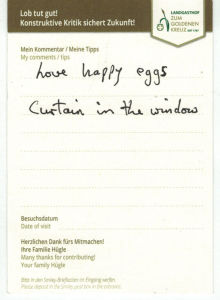 Lob tut gut!
Konstruktive Kritik sichert Zukunft!
LANDGASTHOF
ZUM
GOLDENEN
KREUZ
Mein Kommentar / Meine Tipps
My comments / tips
Love happy eggs
Curtain in the window
Besuchsdatum
Date of visit
Herzlichen Dank fürs Mitmachen!
Ihre Familie Hügle
Many thanks for contributing!
Your family Hügle
Bitte in den Smiley-Briefkasten im Eingang werfen.
Please deposit in the Smiley post box in the entrance.